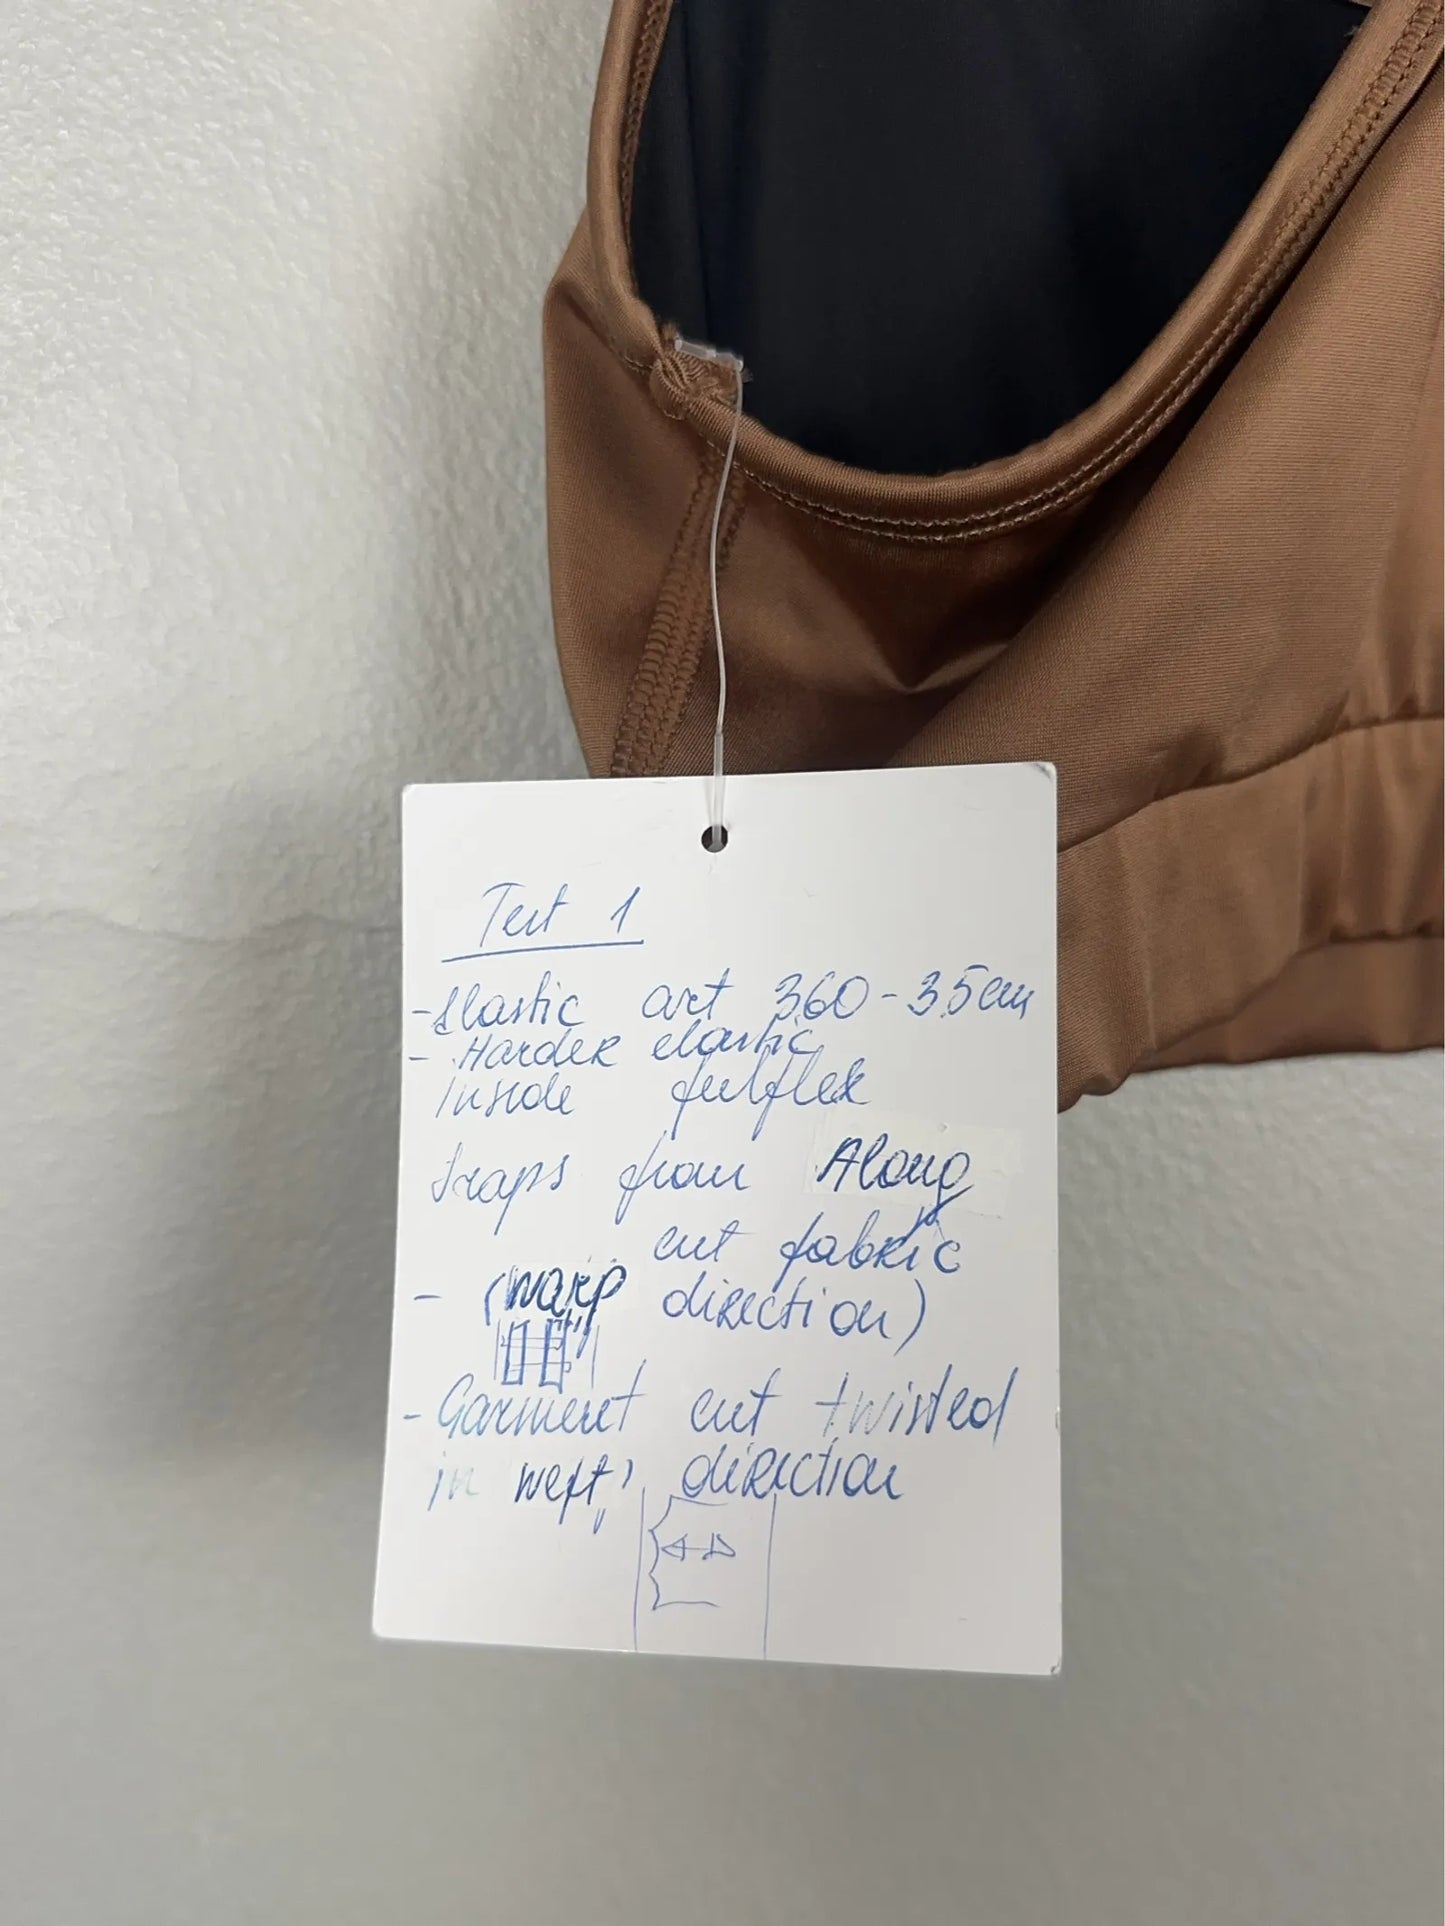 Test 1
- Elastic art 360 - 3.5cm
- Harder elastic
inside fulflex
Sraps from Along
cut fabric
- (warp direction)
- Garment cut twisted
in "weft" direction